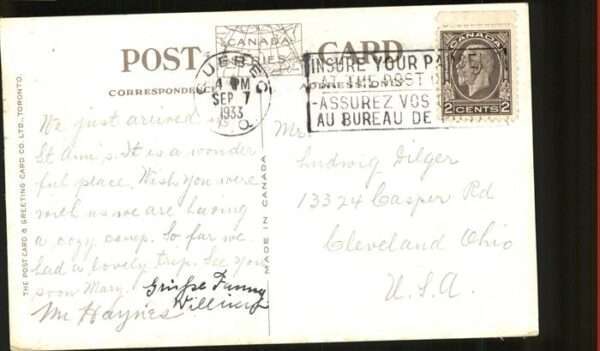 POST CARD
CANADA
SERIES
CORRESPONDENCE
ADDRESS
QUEBEC
4 PM
SEP 7
1933
P. Q.
INSURE YOUR PARCEL
AT THE POST O
ASSUREZ VOS
AU BUREAU DE
CANADA
2 CENTS 2
THE POST CARD & GREETING CARD CO., LTD., TORONTO.
MADE IN CANADA
We just arrived in
St Ann's. It is a wonder
ful place. Wish you were
with us we are having
a cozy camp. So far we
had a lovely trip. See you
soon Mary.
Mr Haynes
Grüsse Fanny
Willing
Mr.
Ludwig Dilger
13324 Casper Rd
Cleveland Ohio
U.S.A.